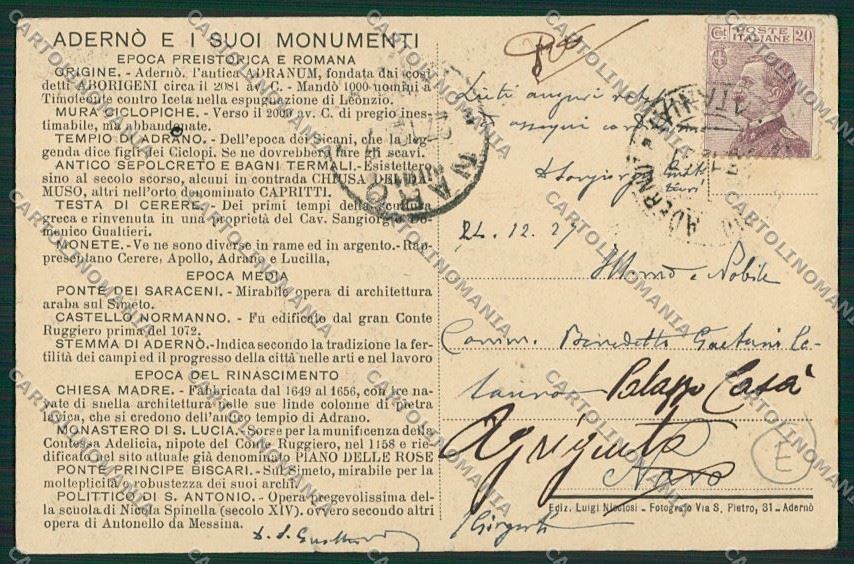 ADERNÒ E I SUOI MONUMENTI
EPOCA PREISTORICA E ROMANA
ORIGINE. - Adernò. l'antica ADRANUM, fondata dai così
detti ABORIGENI circa il 2081 av. C. - Mandò 1000 uomini a
Timoleone contro Iceta nella espugnazione di Leonzio.
MURA CICLOPICHE. - Verso il 2000 av. C. di pregio ines-
timabile, ma abbandonate.
TEMPIO DI ADRANO. - Dell'epoca dei Sicani, che la leg-
genda dice figli dei Ciclopi. Se ne dovrebbero fare gli scavi.
ANTICO SEPOLCRETO E BAGNI TERMALI. - Esistettero
sino al secolo scorso, alcuni in contrada CHIUSA DELLO
MUSO, altri nell'orto denominato CAPRITTI.
TESTA DI CERERE. - Dei primi tempi della scultura
greca e rinvenuta in una proprietà del Cav. Sangiorgio Do-
menico Gualtieri.
MONETE. - Ve ne sono diverse in rame ed in argento. - Rap-
presentano Cerere, Apollo, Adrano e Lucilla,
EPOCA MEDIA
PONTE DEI SARACENI. - Mirabile opera di architettura
araba sul Simeto.
CASTELLO NORMANNO. - Fu edificato dal gran Conte
Ruggiero prima del 1072.
STEMMA DI ADERNÒ. - Indica secondo la tradizione la fer-
tilità dei campi ed il progresso della città nelle arti e nel lavoro
EPOCA DEL RINASCIMENTO
CHIESA MADRE. - Fabbricata dal 1649 al 1656, con tre na-
vate di snella architettura nelle sue linde colonne di pietra
lavica, che si credono dell'antico tempio di Adrano.
MONASTERO DI S. LUCIA. - Sorse per la munificenza della
Contessa Adelicia, nipote del Conte Ruggiero, nel 1158 e rie-
dificato nel sito attuale già denominato PIANO DELLE ROSE
PONTE PRINCIPE BISCARI. - Sul Simeto, mirabile per la
molteplicità e robustezza dei suoi archi.
POLITTICO DI S. ANTONIO. - Opera pregevolissima del-
la scuola di Nicola Spinella (secolo XIV). ovvero secondo altri
opera di Antonello da Messina.
Cent POSTE ITALIANE 20
auguri
24.12.27
Nobile
Comm. Benedetto Gaetani Ca-
Palazzo Casà
Agrigento
Naro
(Girgenti
E
Ediz. Luigi Nicolosi - Fotografo Via S. Pietro, 31 - Adernò
CARTOLINOMANIA